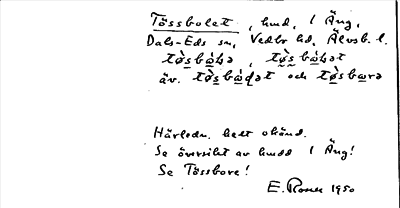 Tössbolet, hmd, i Äng,
Dals-Eds sn, Vedbo hd, Älvsb. l.
tø̀sbὼḷə, tø̀sbὼḷət
äv. tø̀sbὼḍət och tø̀sbωrə
Härledn. helt okänd.
Se översikt av hmdd i Äng!
Se Tössbore!
E. Rosell 1950